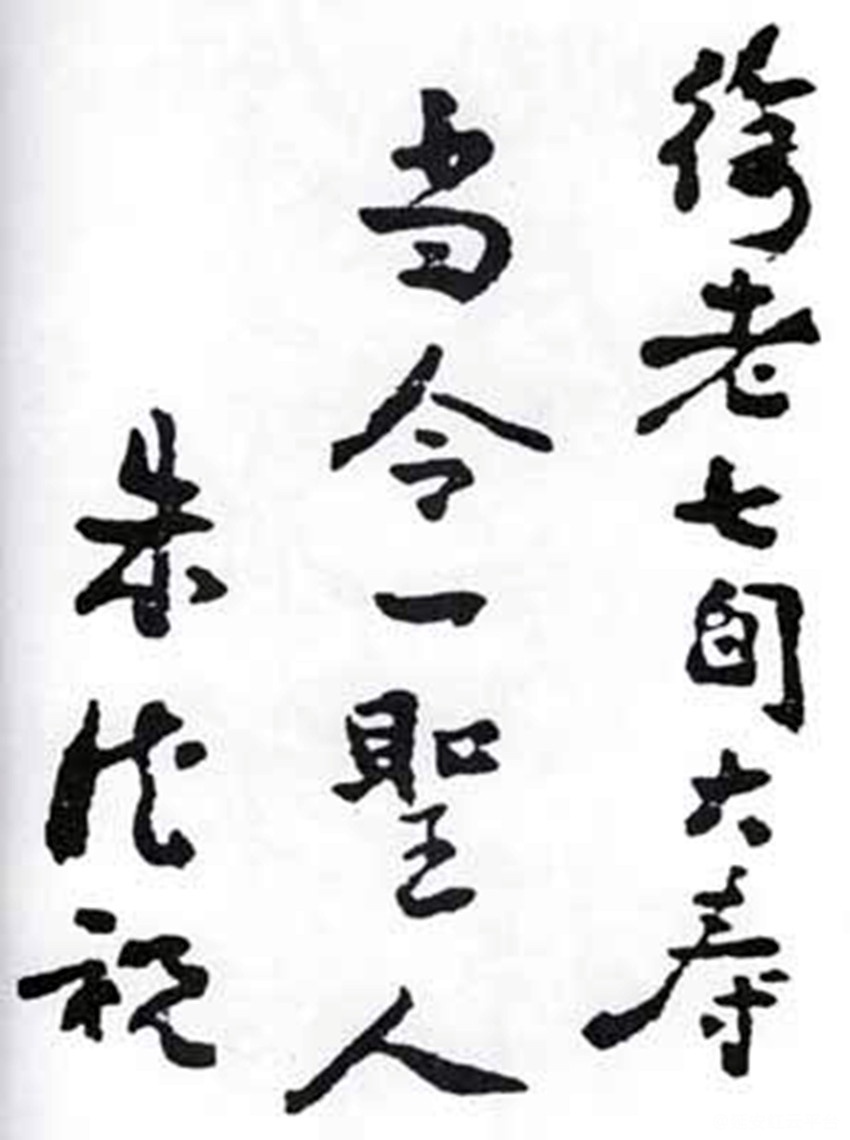 徐老七旬大寿
当今一聖人
朱德祝